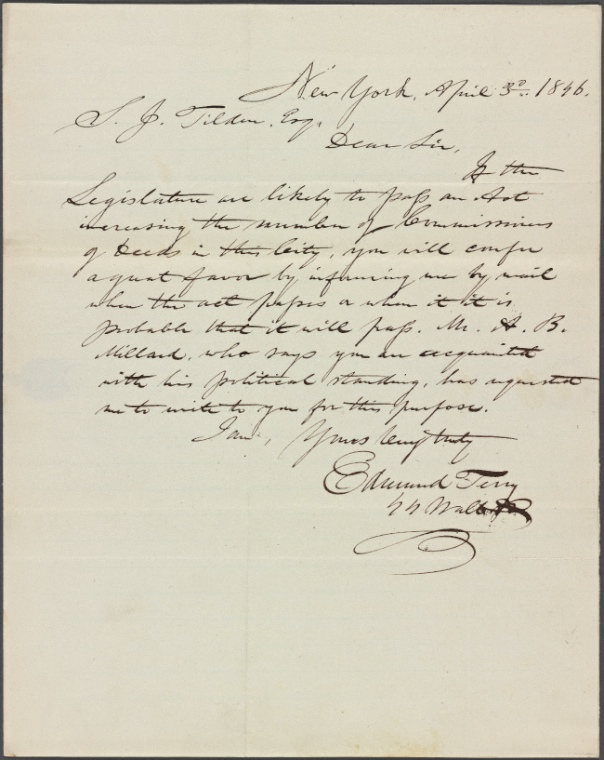 New York, April 3d. 1846.
S. J. Tilden, Esq.
Dear Sir,
If the
Legislature are likely to pass an Act
increasing the number of Commissioners
of Deeds in this City, you will confer
a great favor by informing me by mail
when the act passes or when it it is
probable that it will pass. Mr. A. B.
Millard, who says you are acquainted
with his political standing, has requested
me to write to you for this purpose.
I am, Yours very truly
Edmund Terry
44 Wall